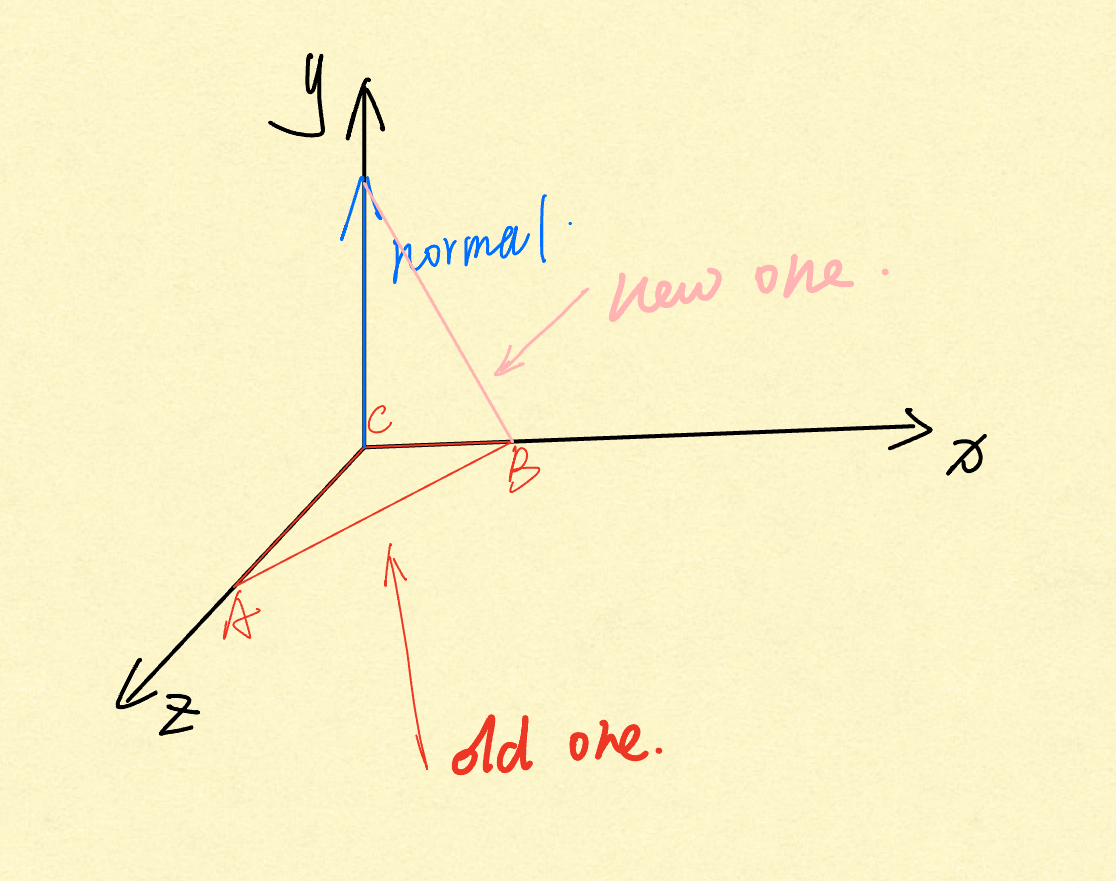 y
normal.
new one.
C
x
B
A
z
old one.